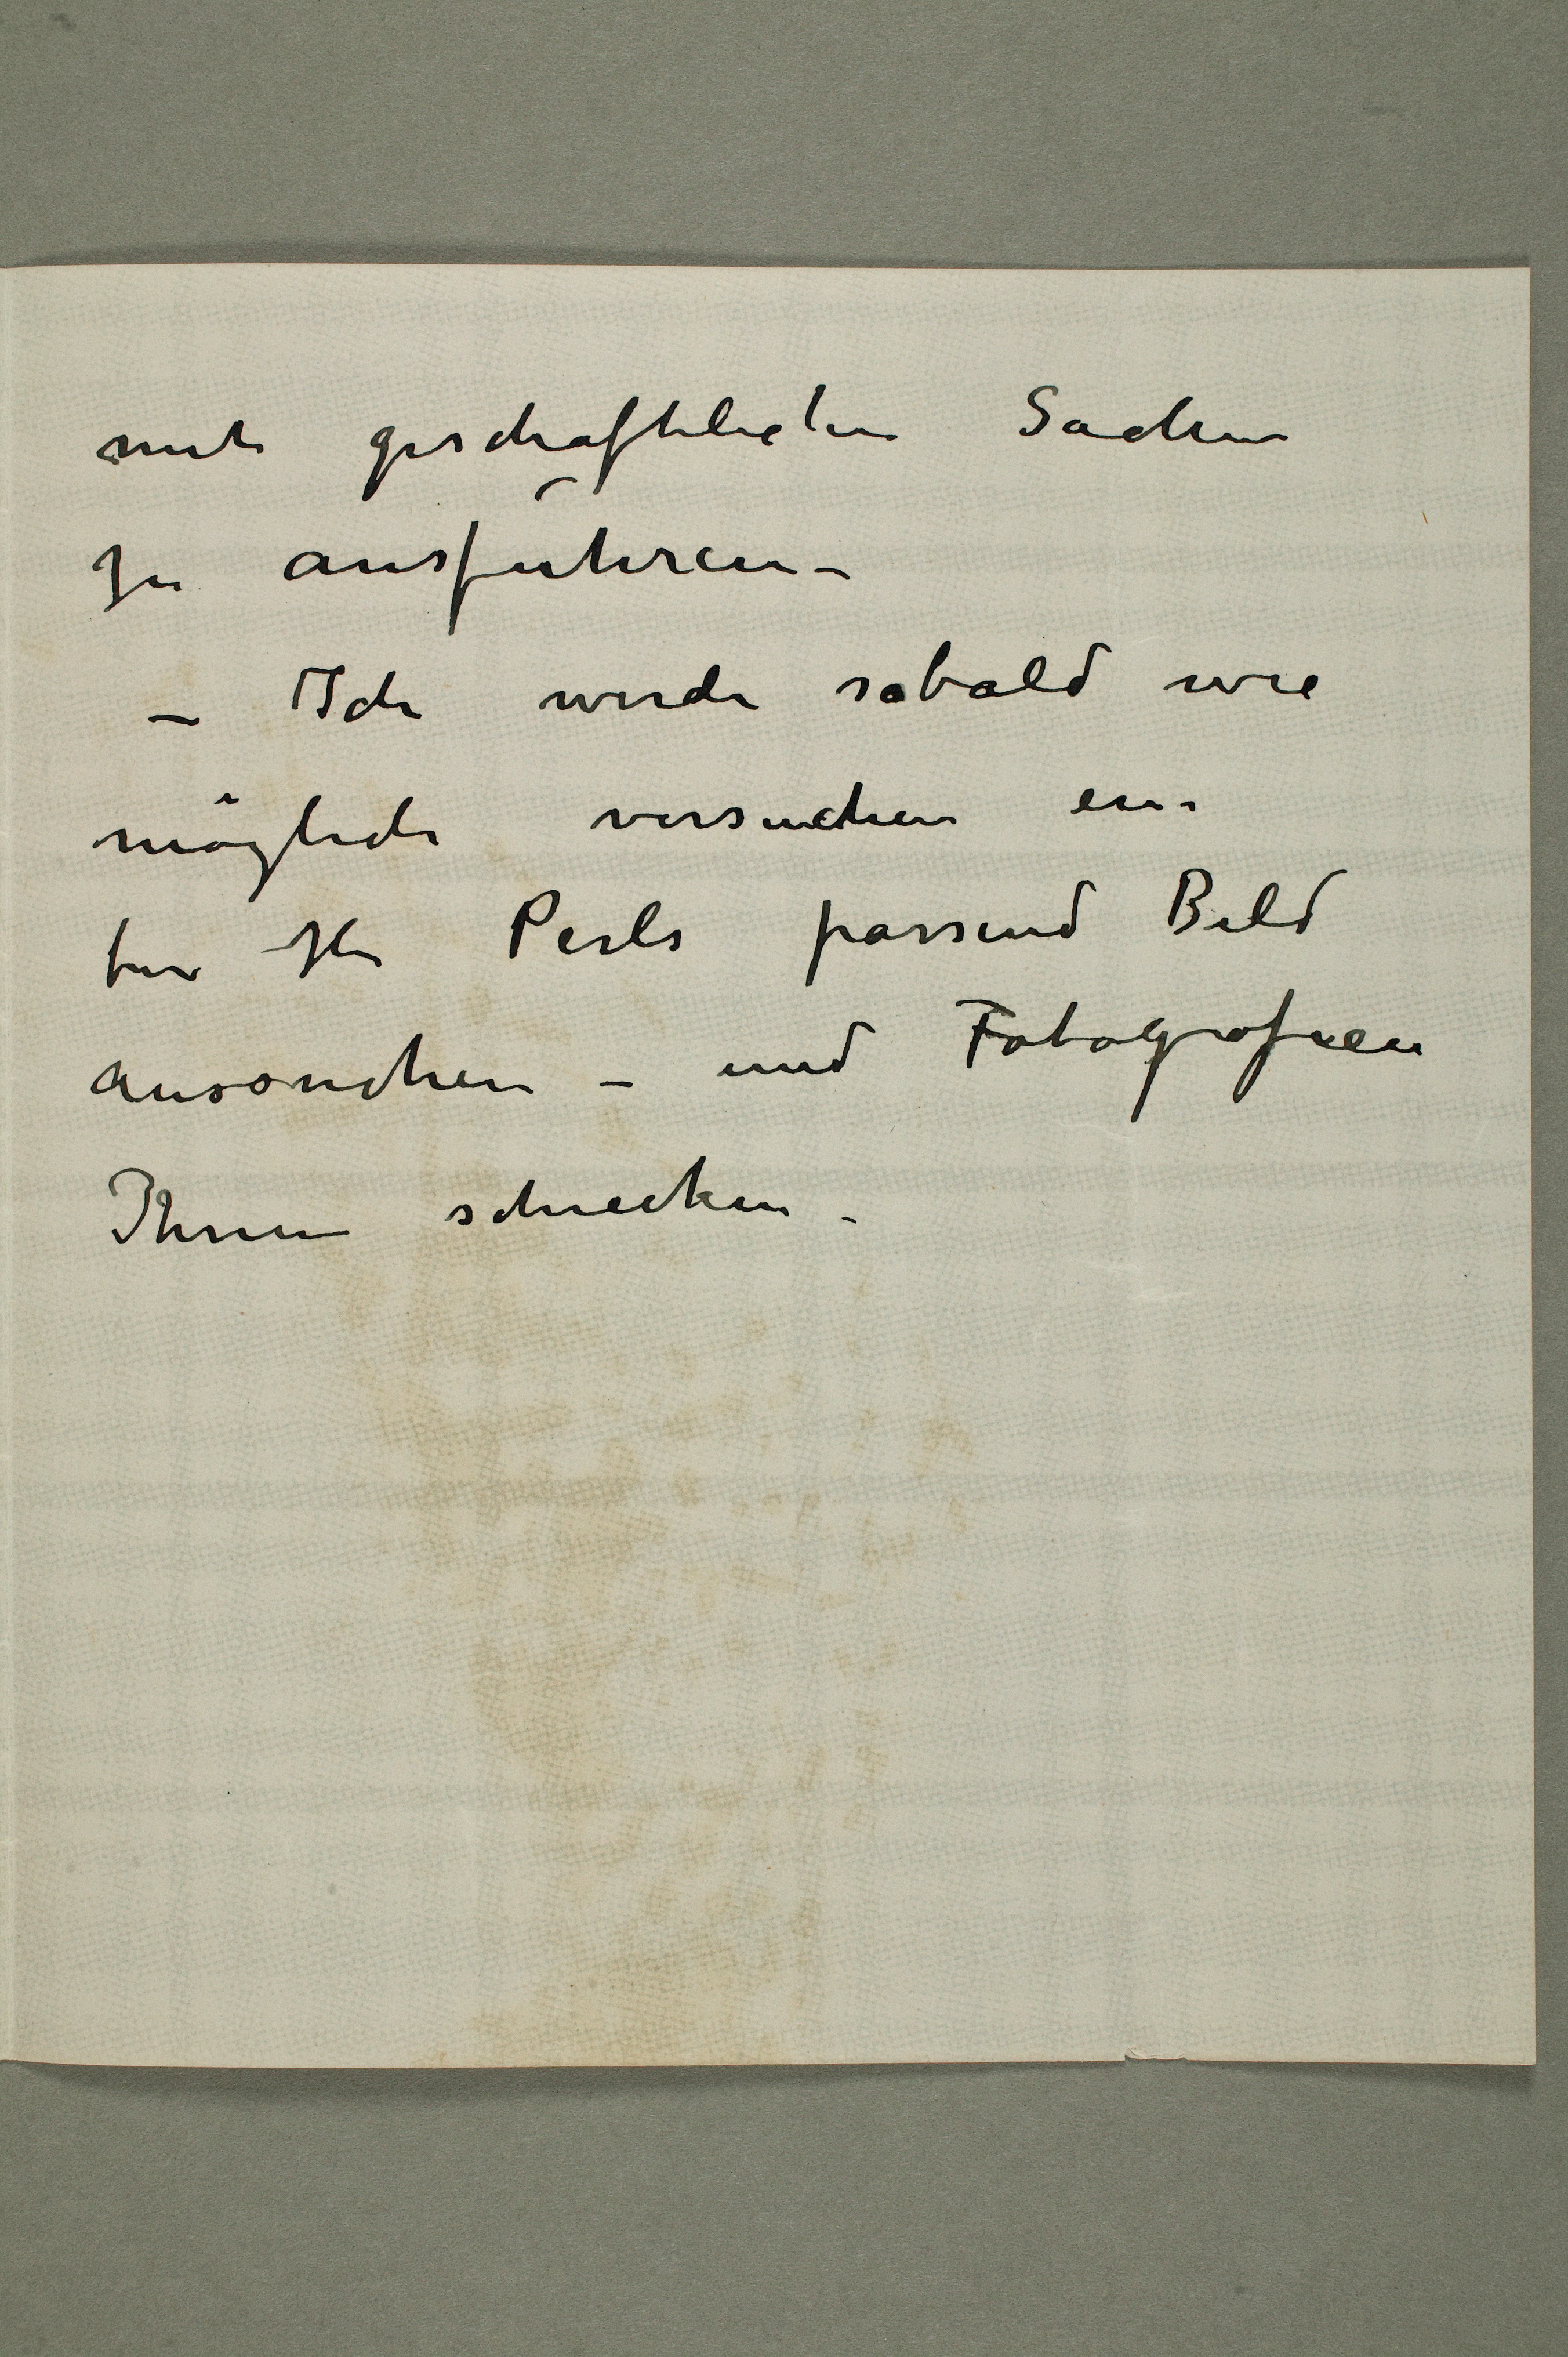 mit geschäftlichen Sachen
zu ausführen –
– Ich werde sobald wie
möglich versuchen ein
für Hr Perls passend Bild
aussuchen – und Fotografien
Ihnen schicken –